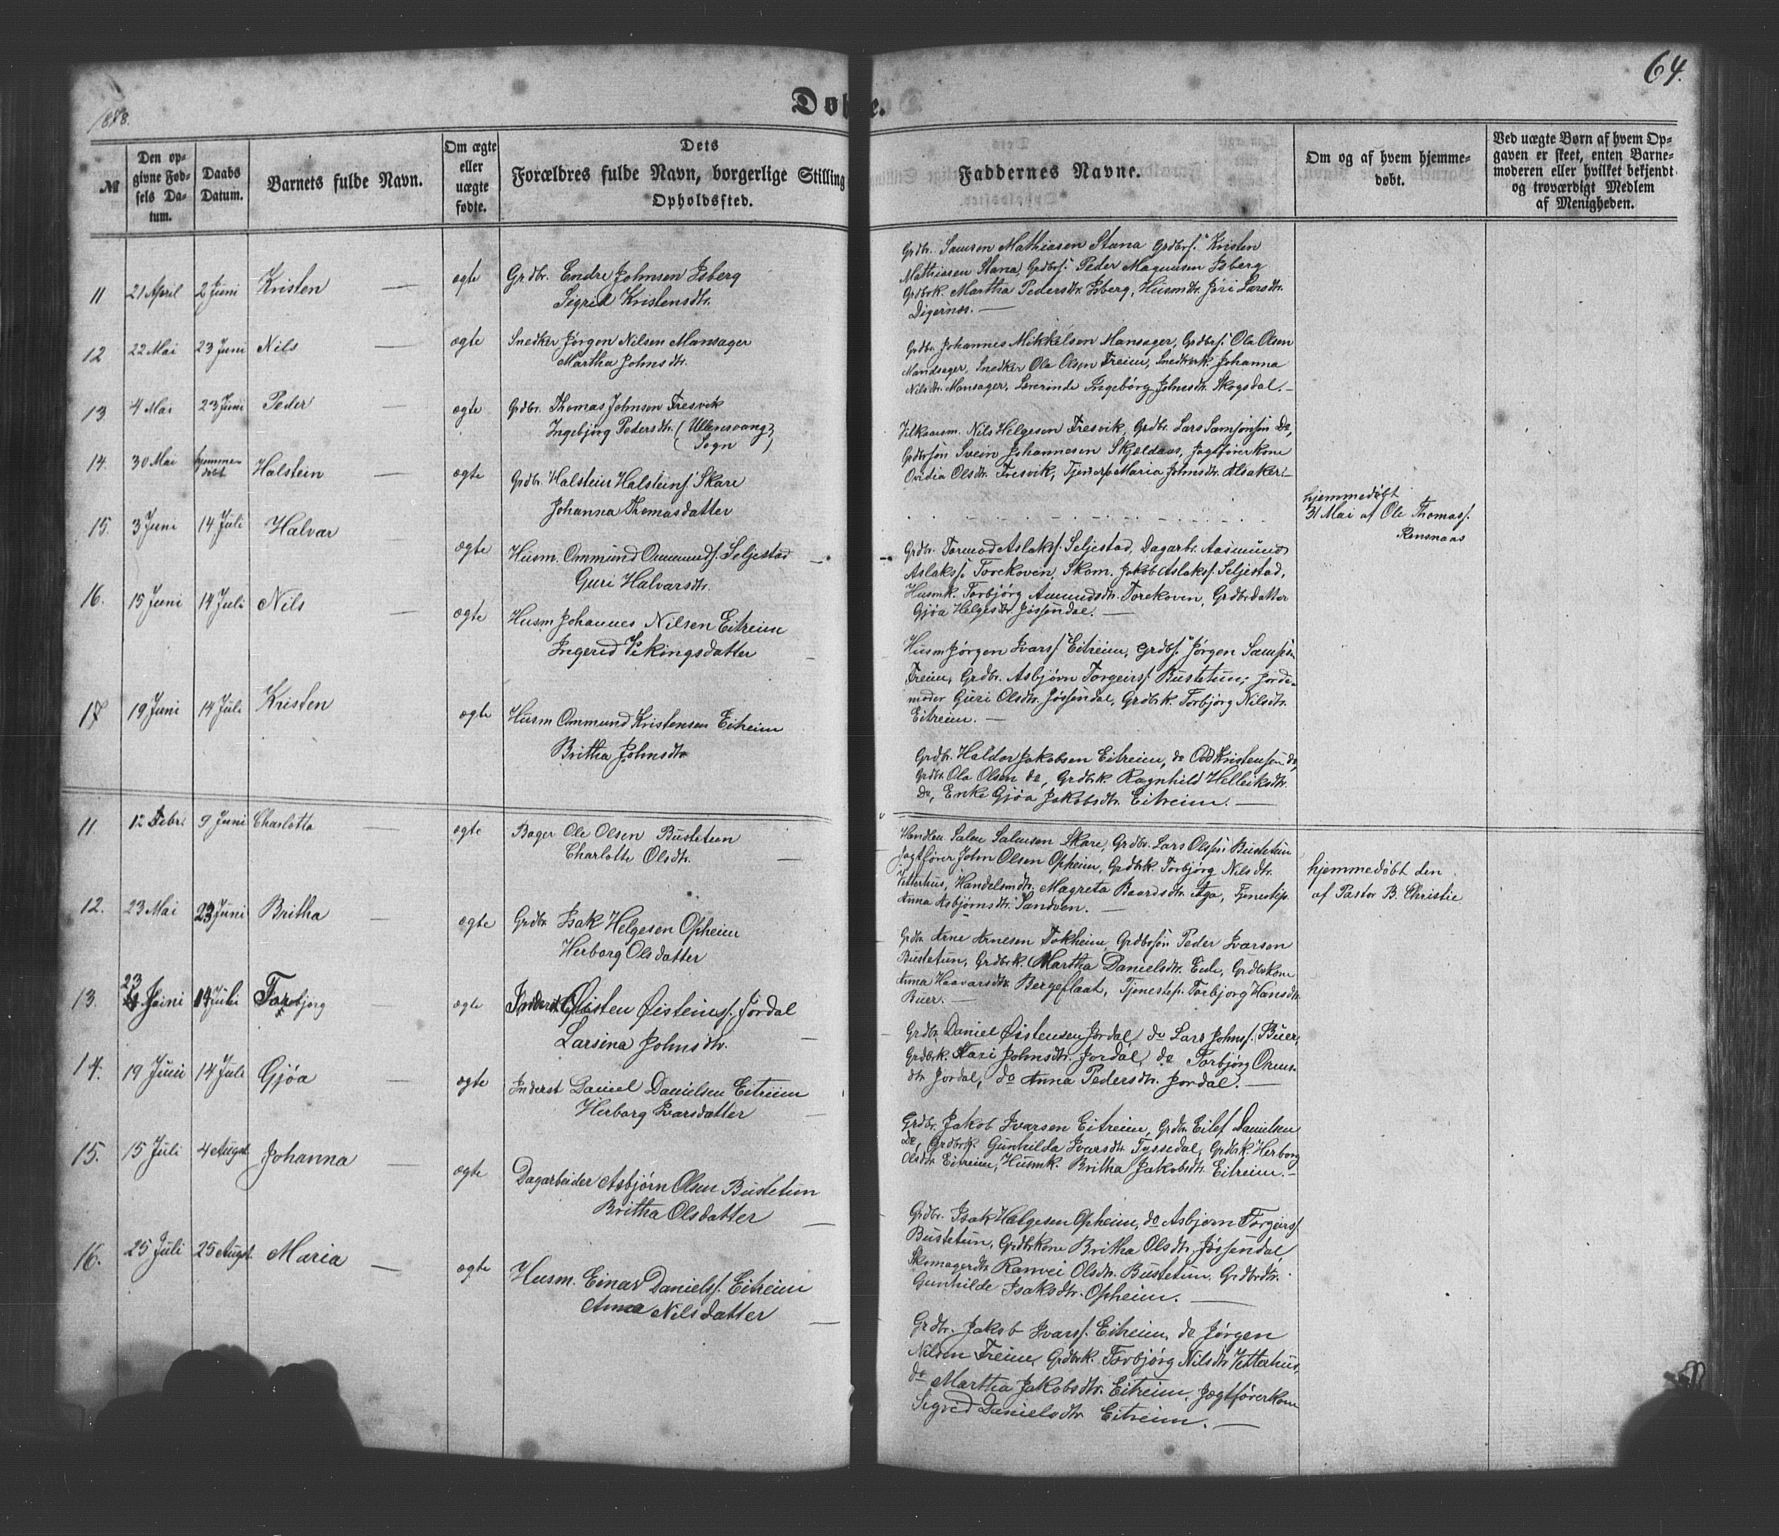 1878.
Døbte.
64.
№
Den op-
givne Fød-
sels Da-
tum.
Daabs
Datum.
Barnets fulde Navn.
Om ægte
eller
uægte
fødte.
Dets
Forældres fulde Navn, borgerlige Stilling
Opholdssted.
Faddernes Navne.
Om og af hvem hjemme-
døbt.
Ved uægte Børn af hvem Op-
gaven er skeet, enten Barne-
moderen eller hvilket bekjendt
og troværdigt Medlem
af Menigheden.
11 21 April 2 Juni Kristen — ægte Grdbr. Endre Johnsen Isberg
Sigrid Kristensdtr.
Grdbr. Samson Mathiasen Stana, Grdbrs. Kristen
Mathiasen Stana, Grdbrs. Peder Magnusen Isberg
Grdbrk. Martha Pedersdtr. Isberg, Husmdtr. Jøri Larsdtr.
Digernes. —
12 22 Mai 23 Juni Nils — ægte Snedker Jørgen Nilsen Mansager
Martha Johnsdtr.
Grdbr. Johannes Mikkelsen Mansager, Grdbrs. Ola Olsen
Mandsager, Snedker Ola Olsen Freim, Snedkerk. Johanna
Nilsdtr. Mansager, Lærerinde Ingebørg Johnsdtr. Skogsdal. —
13 4 Mai 23 Juni Peder — ægte Grdbr. Thomas Johnsen Tresvik
Ingebjørg Pedersdtr. (Ullensvang,
Sogn)
Vilkaarsm. Nils Helgesen Tresvik, Grdbr. Lars Samsonsøn Do,
Grdbrsøn Svein Johannesen Skjeldaas, Jagtførerkone
Ovidia Olsdtr. Tresvik, Tjenerp. Maria Johnsdtr. Alsaker. —
14. 30 Mai hjemme-
døbt Halstein — ægte Grdbr. Halstein Halsteins. Skare
Johanna Thomasdatter
hjemmedøbt
31 Mai af Ole Thomass.
Rensnaas
15. 3 Juni 14 Juli Halvar — ægte Husm. Ommund Ommunds. Seljestad —
Guri Halvarsdtr.
Grdbr. Tormod Aslaks. Seljestad, Dagarb. Aasmund
Aslaks. Torekoven, Skom. Jakob Aslaks. Seljestad,
Husmk. Torbjørg Amundsdtr. Torekoven, Grdbrdatter
Gjøa Helgesdtr. Jøssendal. —
16. 15 Juni 14 Juli Nils — ægte Husm Johannes Nilsen Eitreim
Ingerid Vikingsdatter —
Husm Jørgen Ivars. Eitreim, Grdbs. Jørgen Samsen
Freim, Grdbr. Asbjørn Torgeirs. Bustetun, Jorde-
moder Guri Olsdtr. Jøssendal, Grdbrk. Torbjørg Nilsdtr.
Eitreim. —
17 19 Juni 14 Juli Kristen ægte Husm Ommund Kristensen Eitreim
Britha Johnsdtr
Grdbr. Haldor Jakobsen Eitreim, do Odd Kristensøn do,
Grdbr. Ola Olsen do, Grdbrk. Ragnhild Helleiksdtr.
do, Enke Gjøa Jakobsdtr. Eitreim. —
11. 12 Febr. 9 Juni Charlotte — ægte Bager Ole Olsen Bustetun
Charlotte Olsdtr. —
Handlen Salen Salensen Skare, Grdbr. Lars Olssøn Bustetun
Jagtfører John Olsen Opheim, Grdbrk. Torbjørg Nilsdtr.
Vetterhus, Handelsmdtr. Magreta Baardsdtr. Aga, Tjenestep.
Anna Asbjørnsdtr. Sandven. —
hjemmedøbt den
af Pastor B. Christie
12. 23 Mai 23 Juni Britha — ægte Grdbr. Isak Helgesen Opheim
Herborg Olsdatter
Grdbr. Arne Arnesen Tokheim, Grdbrsøn Peder Ivarsen
Bustetun, Grdbrk. Martha Danielsdtr. Eide, Grdbrkone
Anna Haavarsdtr. Bergeflaat, Tjenestep. Torbjørg Hansdtr.
Buer. —
13. 23 Juni 14 Juli Torbjørg ægte Inderst Øisten Øisteins. Jordal
Larsina Johnsdtr. —
Grdbr. Daniel Øistensen Jordal, do Lars Johns. Buer,
Grdbrk. Kari Johnsdtr. Jordal, do Torbjørg Orms-
dtr. Jordal, do Anna Pedersdtr. Jordal. —
14. 19 Juni 14 Juli Gjøa — ægte Inderst Daniel Danielsen Eitreim
Herborg Ivarsdatter —
Grdbr. Jakob Ivarsen Eitreim, Grdbr Eilef Danielsen
Do, Grdbrk. Gunhilda Ivarsdtr. Tyssedal, Grdbk. Herborg
Olsdtr. Eitreim, Husmk. Britha Jakobsdtr. Eitreim. —
15. 15 Juli 4 August Johanna — ægte Dagarbeider Asbjørn Olsen Bustetun
Britha Olsdatter —
Grdbr. Isak Helgesen Opheim, do Asbjørn Torgeirs.
Bustetun, Grdbrkone Britha Olsdtr. Jøssendal,
Skomagerdtr. Ranvei Olsdtr. Bustetun, Grdbrdtr.
Gunhilde Isaksdtr. Opheim. —
16. 25 Juli 25 August Maria — ægte Husm. Einar Daniels. Eitreim
Anna Nilsdatter —
Grdbr. Jakob Ivars. Eitreim, do Jørgen
Nilsen Freim, Grdbrk. Torbjørg Nilsdtr Vetterhus,
do Martha Jakobsdtr. Eitreim, Jagtførerkone
Sigrid Danielsdtr Eitreim. —